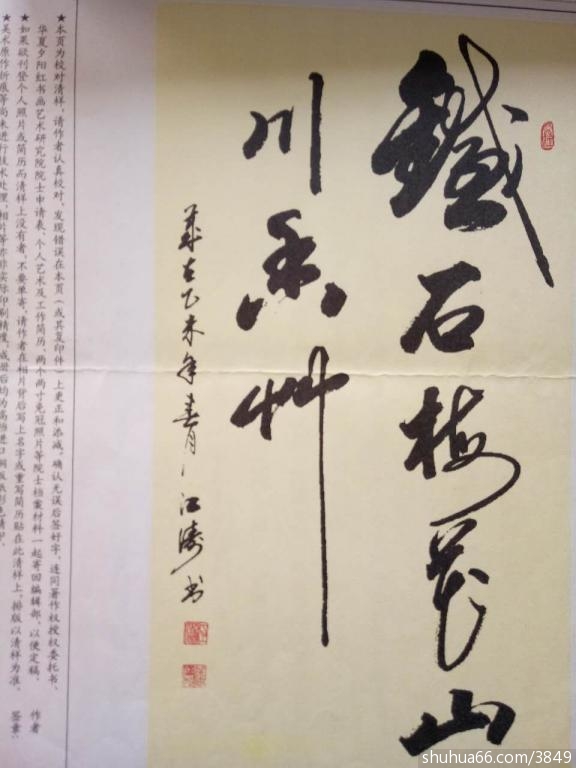 鐵石梅花山
川香艸
歲在乙未年春月江濤书
★本页为校对清样,请作者认真校对。发现错误在本页(或其复印件)上更正和添减。确认无误后签好字,连同著作权授权委托书、
华夏夕阳红书画艺术研究院院士申请表、个人艺术及工作简历、两个两寸免冠照片等院士档案材料一起寄回编辑部,以便定稿。 作者
★如果欲刊登个人照片或简历而清样上没有者,不要单寄,请作者在相片背后写上名字或重写简历贴在此清样上,排版以清样为准。 签章:
★美术原作折痕等尚未进行技术处理,相片等亦非实际印刷精度,成册后均为高档进口铜版纸彩色精印。
shuhua66.com/3849